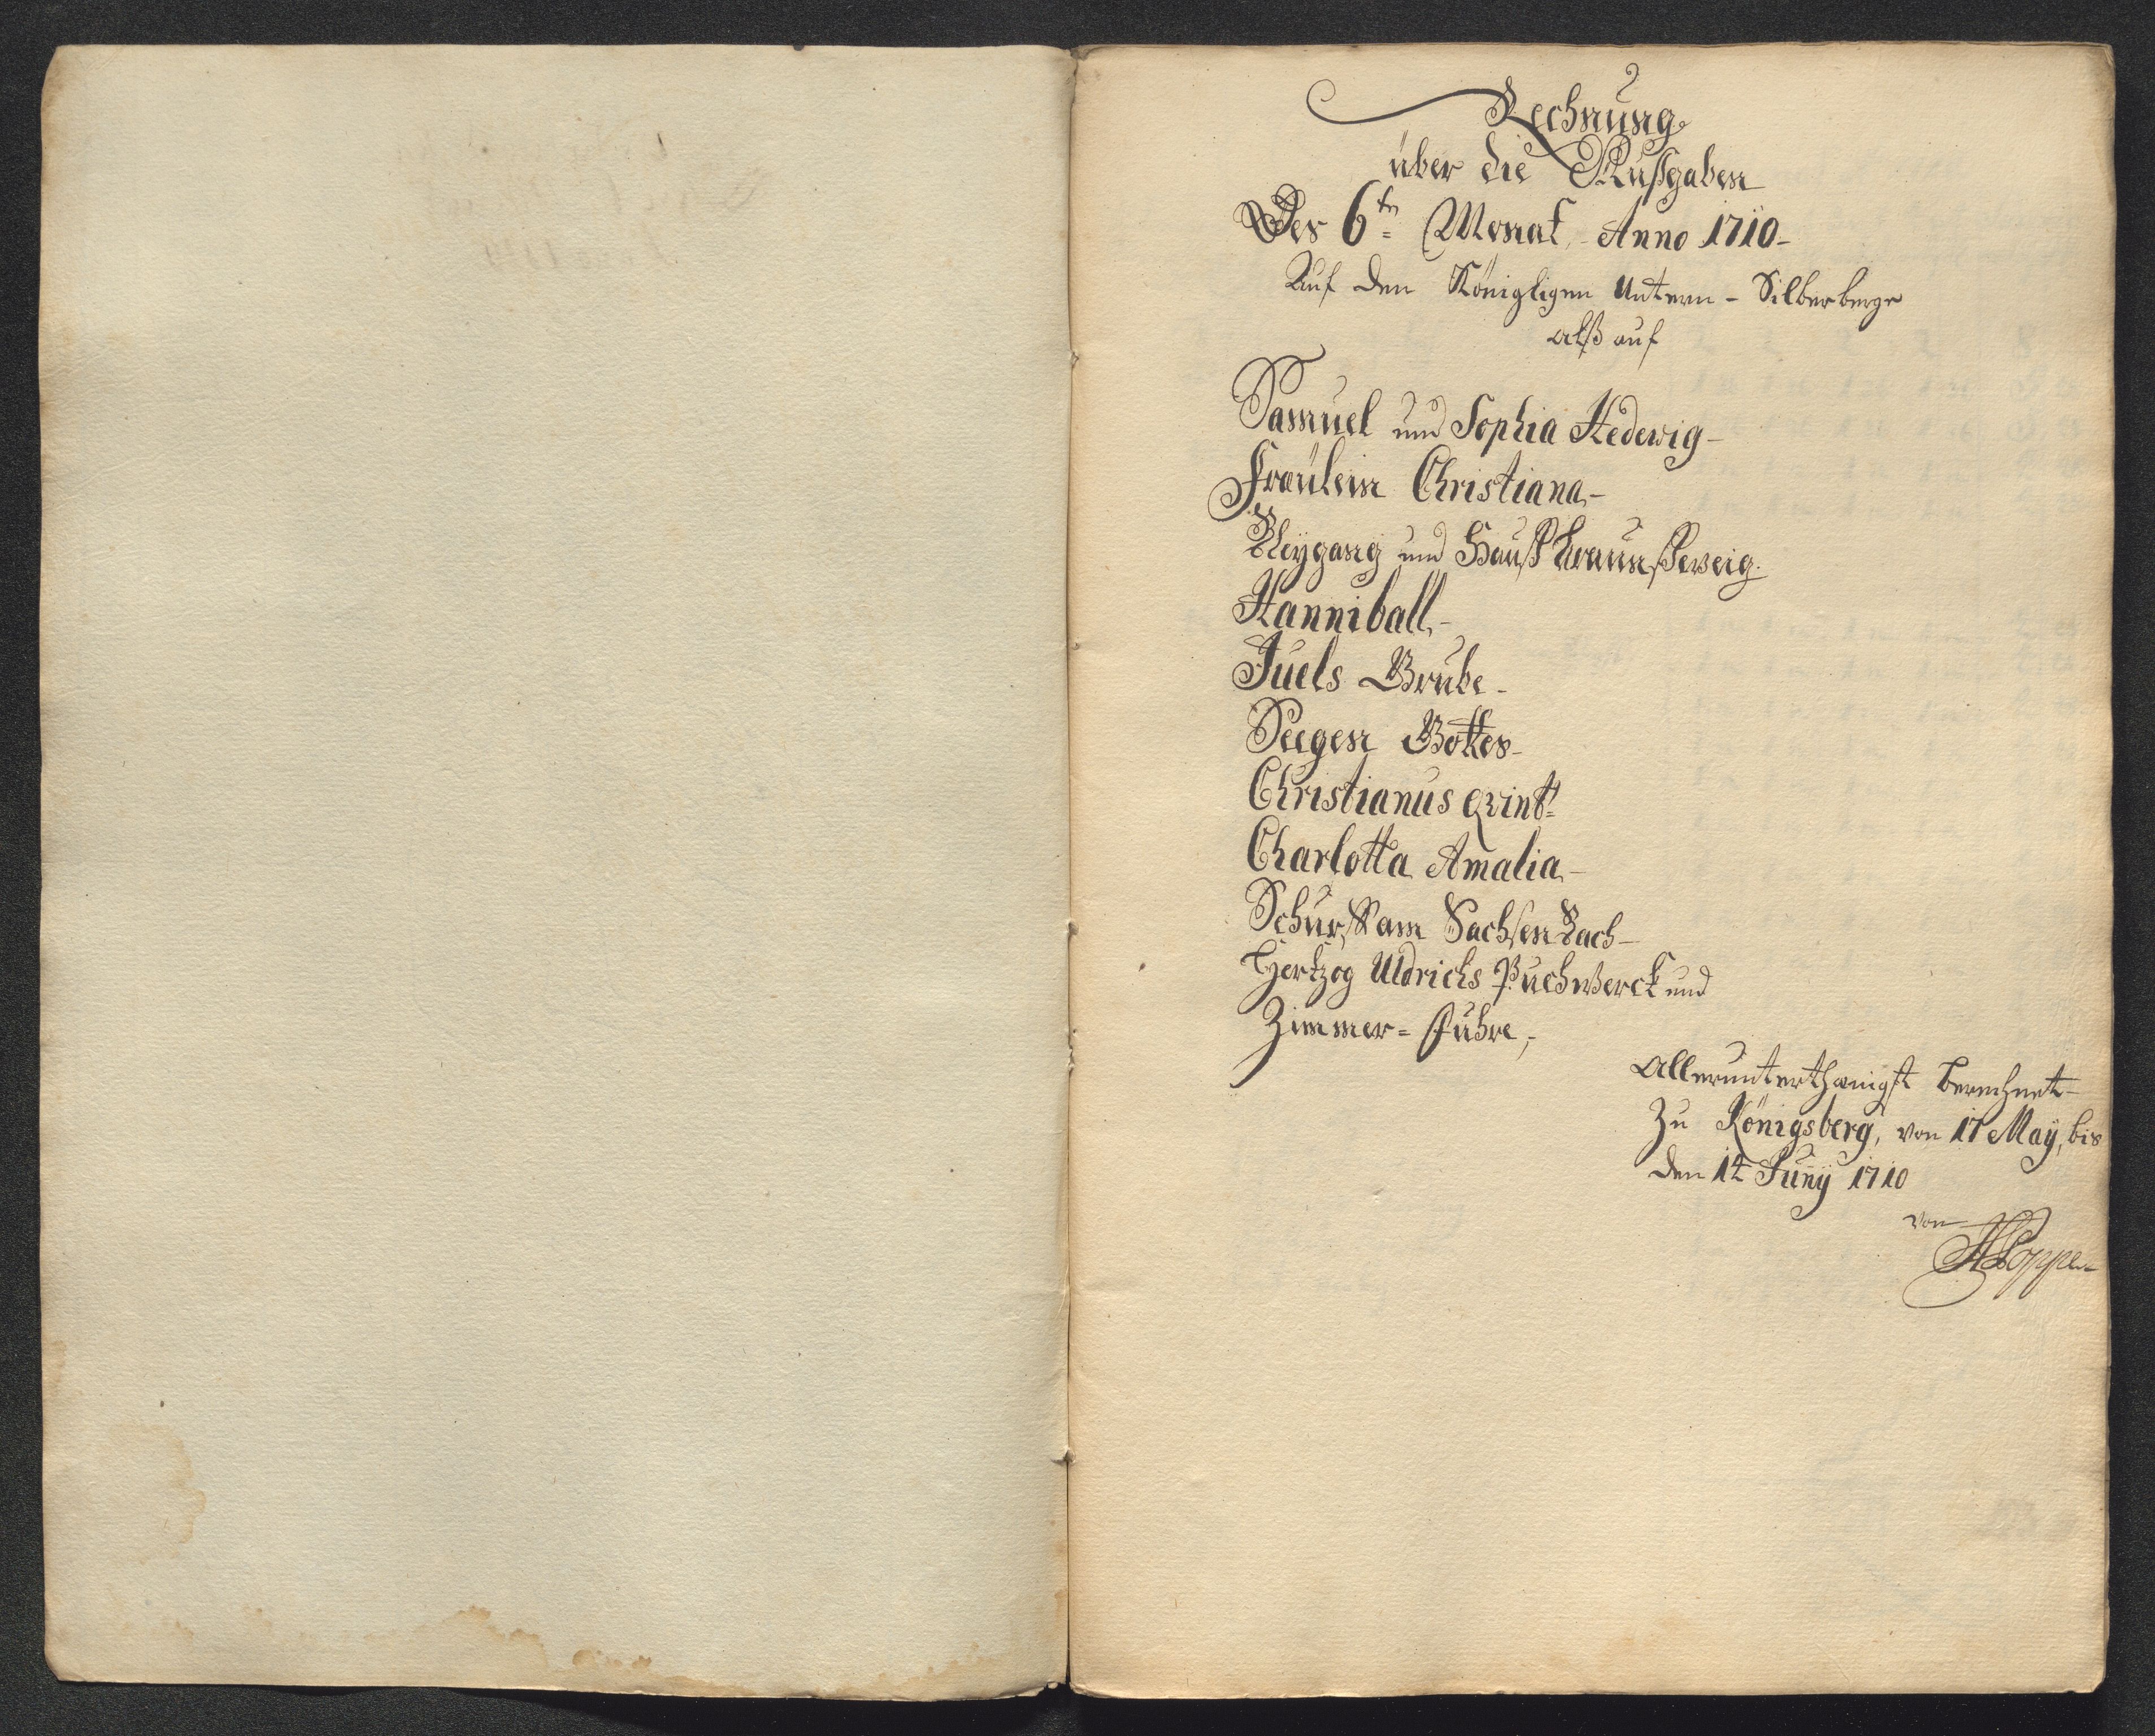 Rechnung
über die Außgaben
Des 6tn Monat, Anno 1710-
Auf den Königligen Untern-Silberberge
alß auf
Samuel und Sophia Hedewig-
Fraülein Christiana-
Bleygang und Hauß Braunßweig.
Hanniball,-
Juels Grube-
Seegen Gottes-
Christianus Qvint:
Charlotta Amalia-
Schurff am Sachsen Bach-
Hertzog Uldrichs Puchwerck und
Zimmer-Fuhre,-
Allerunterthänigst Berechnet-
Zu Königsberg, von 17 Maÿ, bis
den 14 Junÿ 1710
von
Poppe